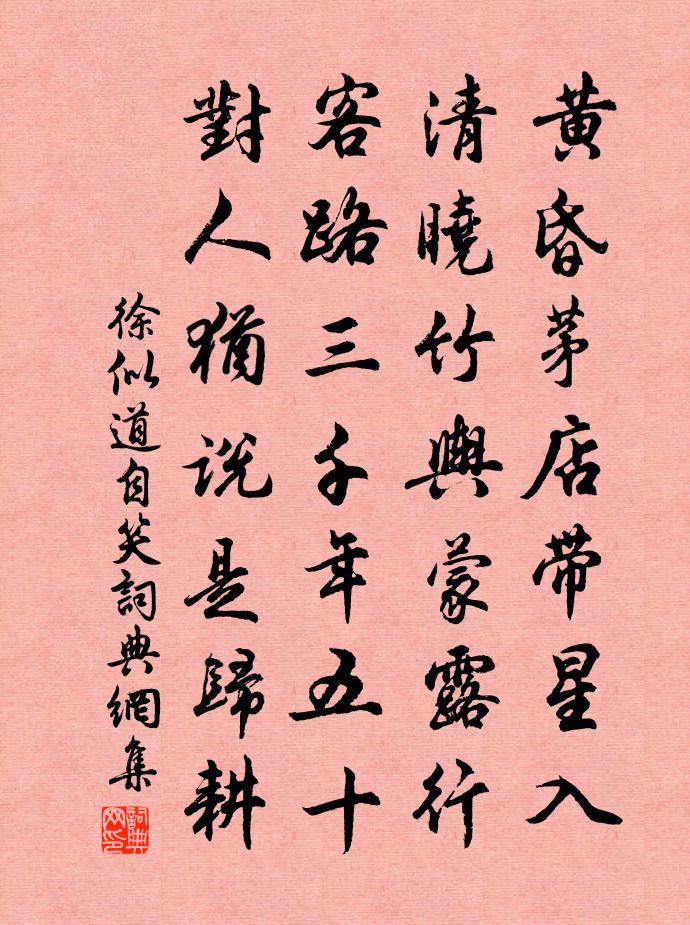 黄昏茅店带星入
清曉竹輿蒙露行
客路三千年五十
對人猶说是歸耕
徐似道自笑詞典網集
詞典网印